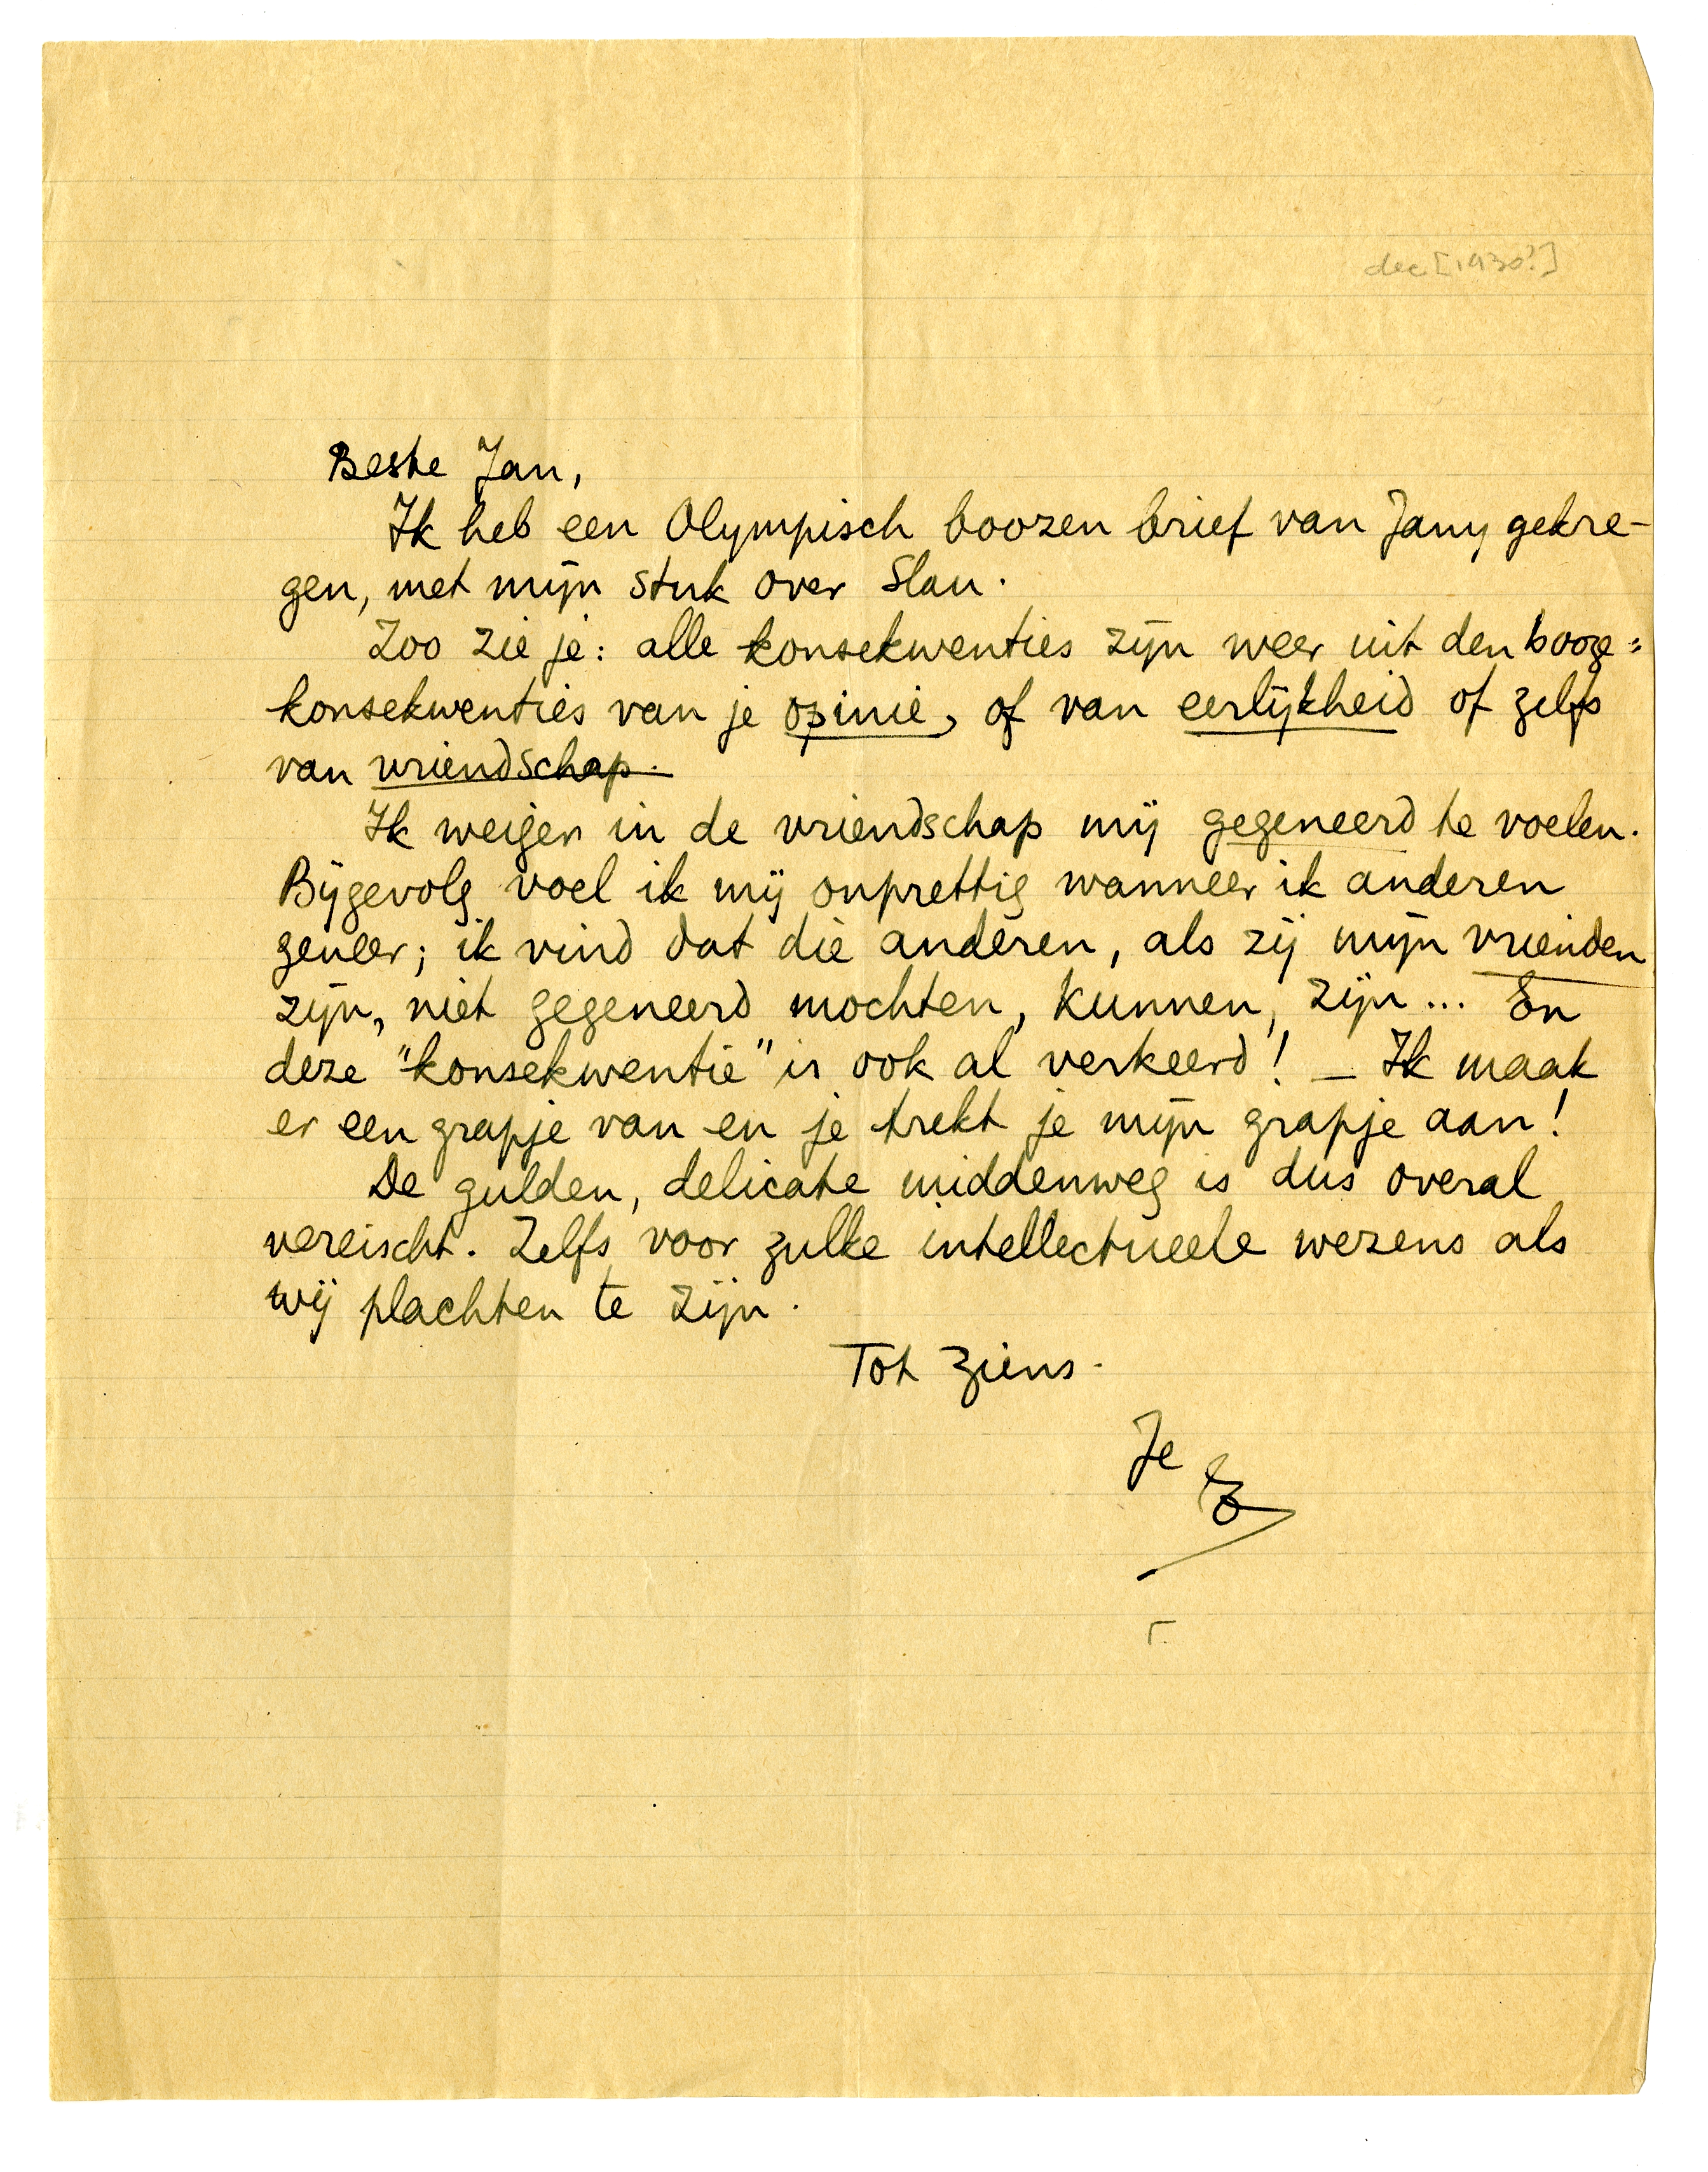 dec [1930?]
Beste Jan,
Ik heb een Olympisch boozen brief van Jany gekre-
gen, met mijn stuk over Slau.
Zoo zie je: alle konsekwenties zijn weer uit den booze:
konsekwenties van je opinie, of van eerlijkheid of zelfs
van vriendschap.
Ik weiger in de vriendschap mij gegeneerd te voelen.
Bijgevolg voel ik mij onprettig wanneer ik anderen
geneer; ik vind dat die anderen, als zij mijn vrienden
zijn, niet gegeneerd mochten, kunnen, zijn... En
deze "konsekwentie" is ook al verkeerd! — Ik maak
er een grapje van en je trekt je mijn grapje aan!
De gulden, delicate middenweg is dus overal
vereischt. Zelfs voor zulke intellectueele wezens als
wij plachten te zijn.
Tot ziens.
Je